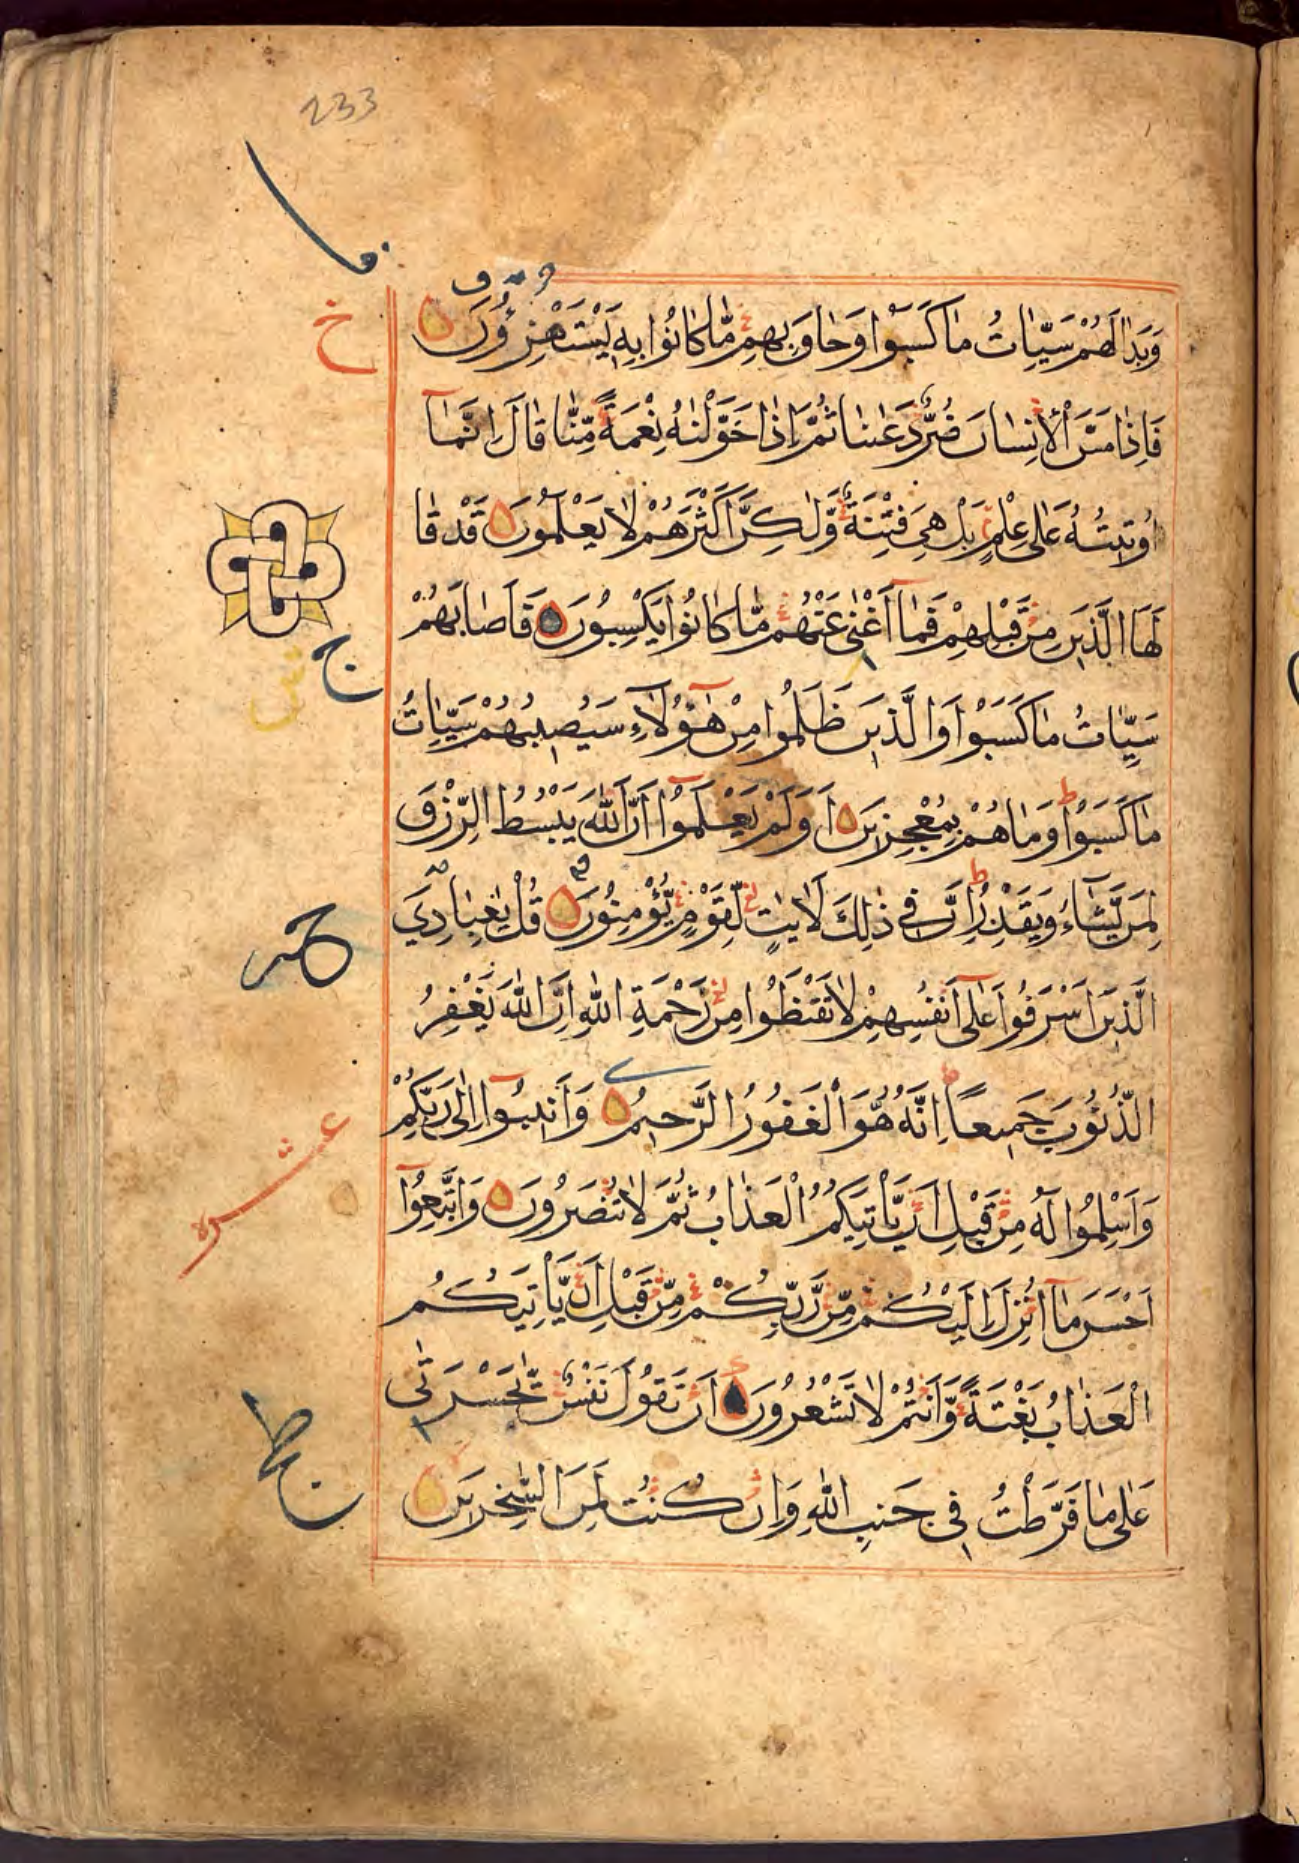 233
وَبَدَا لَهُمْ سَيِّاٰتُ مَا كَسَبُوْا وَحَاقَ بِهِمْ مَّا كَانُوْا بِهٖ يَسْتَهْزِؤُوْنَ
فَاِذَا مَسَّ الْاِنْسَانَ ضُرٌّ دَعَانَا ثُمَّ اِذَا خَوَّلْنٰهُ نِعْمَةً مِّنَّا قَالَ اِنَّمَآ
اُوْتِيْتُهُ عَلٰى عِلْمٍ بَلْ هِيَ فِتْنَةٌ وَّلٰكِنَّ اَكْثَرَهُمْ لَا يَعْلَمُوْنَ قَدْ قَا
لَهَا الَّذِيْنَ مِنْ قَبْلِهِمْ فَمَآ اَغْنٰى عَنْهُمْ مَّا كَانُوْا يَكْسِبُوْنَ فَاَصَابَهُمْ
سَيِّاٰتُ مَا كَسَبُوْا وَالَّذِيْنَ ظَلَمُوْا مِنْ هٰٓؤُلَآءِ سَيُصِيْبُهُمْ سَيِّاٰتُ
مَا كَسَبُوْا وَمَا هُمْ بِمُعْجِزِيْنَ اَوَلَمْ يَعْلَمُوْٓا اَنَّ اللّٰهَ يَبْسُطُ الرِّزْقَ
لِمَنْ يَّشَآءُ وَيَقْدِرُ اِنَّ فِيْ ذٰلِكَ لَاٰيٰتٍ لِّقَوْمٍ يُّؤْمِنُوْنَ قُلْ يٰعِبَادِيَ
الَّذِيْنَ اَسْرَفُوْا عَلٰٓى اَنْفُسِهِمْ لَا تَقْنَطُوْا مِنْ رَّحْمَةِ اللّٰهِ اِنَّ اللّٰهَ يَغْفِرُ
الذُّنُوْبَ جَمِيْعًا اِنَّهُ هُوَ الْغَفُوْرُ الرَّحِيْمُ وَاَنِيْبُوْٓا اِلٰى رَبِّكُمْ
وَاَسْلِمُوْا لَهُ مِنْ قَبْلِ اَنْ يَّأْتِيَكُمُ الْعَذَابُ ثُمَّ لَا تُنْصَرُوْنَ وَاتَّبِعُوْٓا
اَحْسَنَ مَآ اُنْزِلَ اِلَيْكُمْ مِّنْ رَّبِّكُمْ مِّنْ قَبْلِ اَنْ يَّأْتِيَكُمُ
الْعَذَابُ بَغْتَةً وَّاَنْتُمْ لَا تَشْعُرُوْنَ اَنْ تَقُوْلَ نَفْسٌ يّٰحَسْرَتٰى
عَلٰى مَا فَرَّطْتُ فِيْ جَنْبِ اللّٰهِ وَاِنْ كُنْتُ لَمِنَ السّٰخِرِيْنَ
خ
ج
عشره